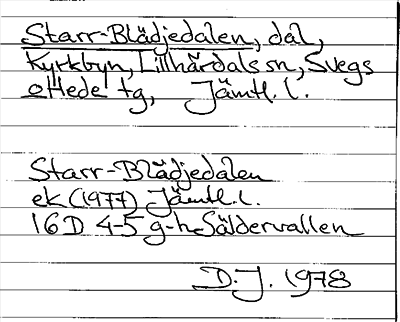 Starr-Blädjedalen, dal,
Kyrkbyn, Lillhärdals sn, Svegs
o Hede tg, Jämtl. l.
Starr-Blädjedalen
ek (1977) Jämtl. l.
16D 4-5 g-h Säldervallen
D.J. 1978